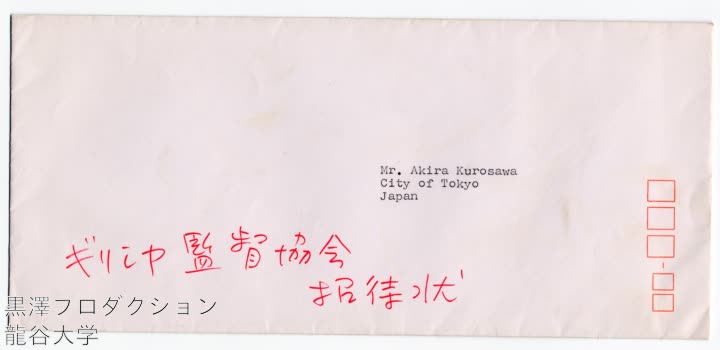 Mr. Akira Kurosawa
City of Tokyo
Japan
ギリシヤ監督協会
招待状
黒澤フロダクション
龍谷大学